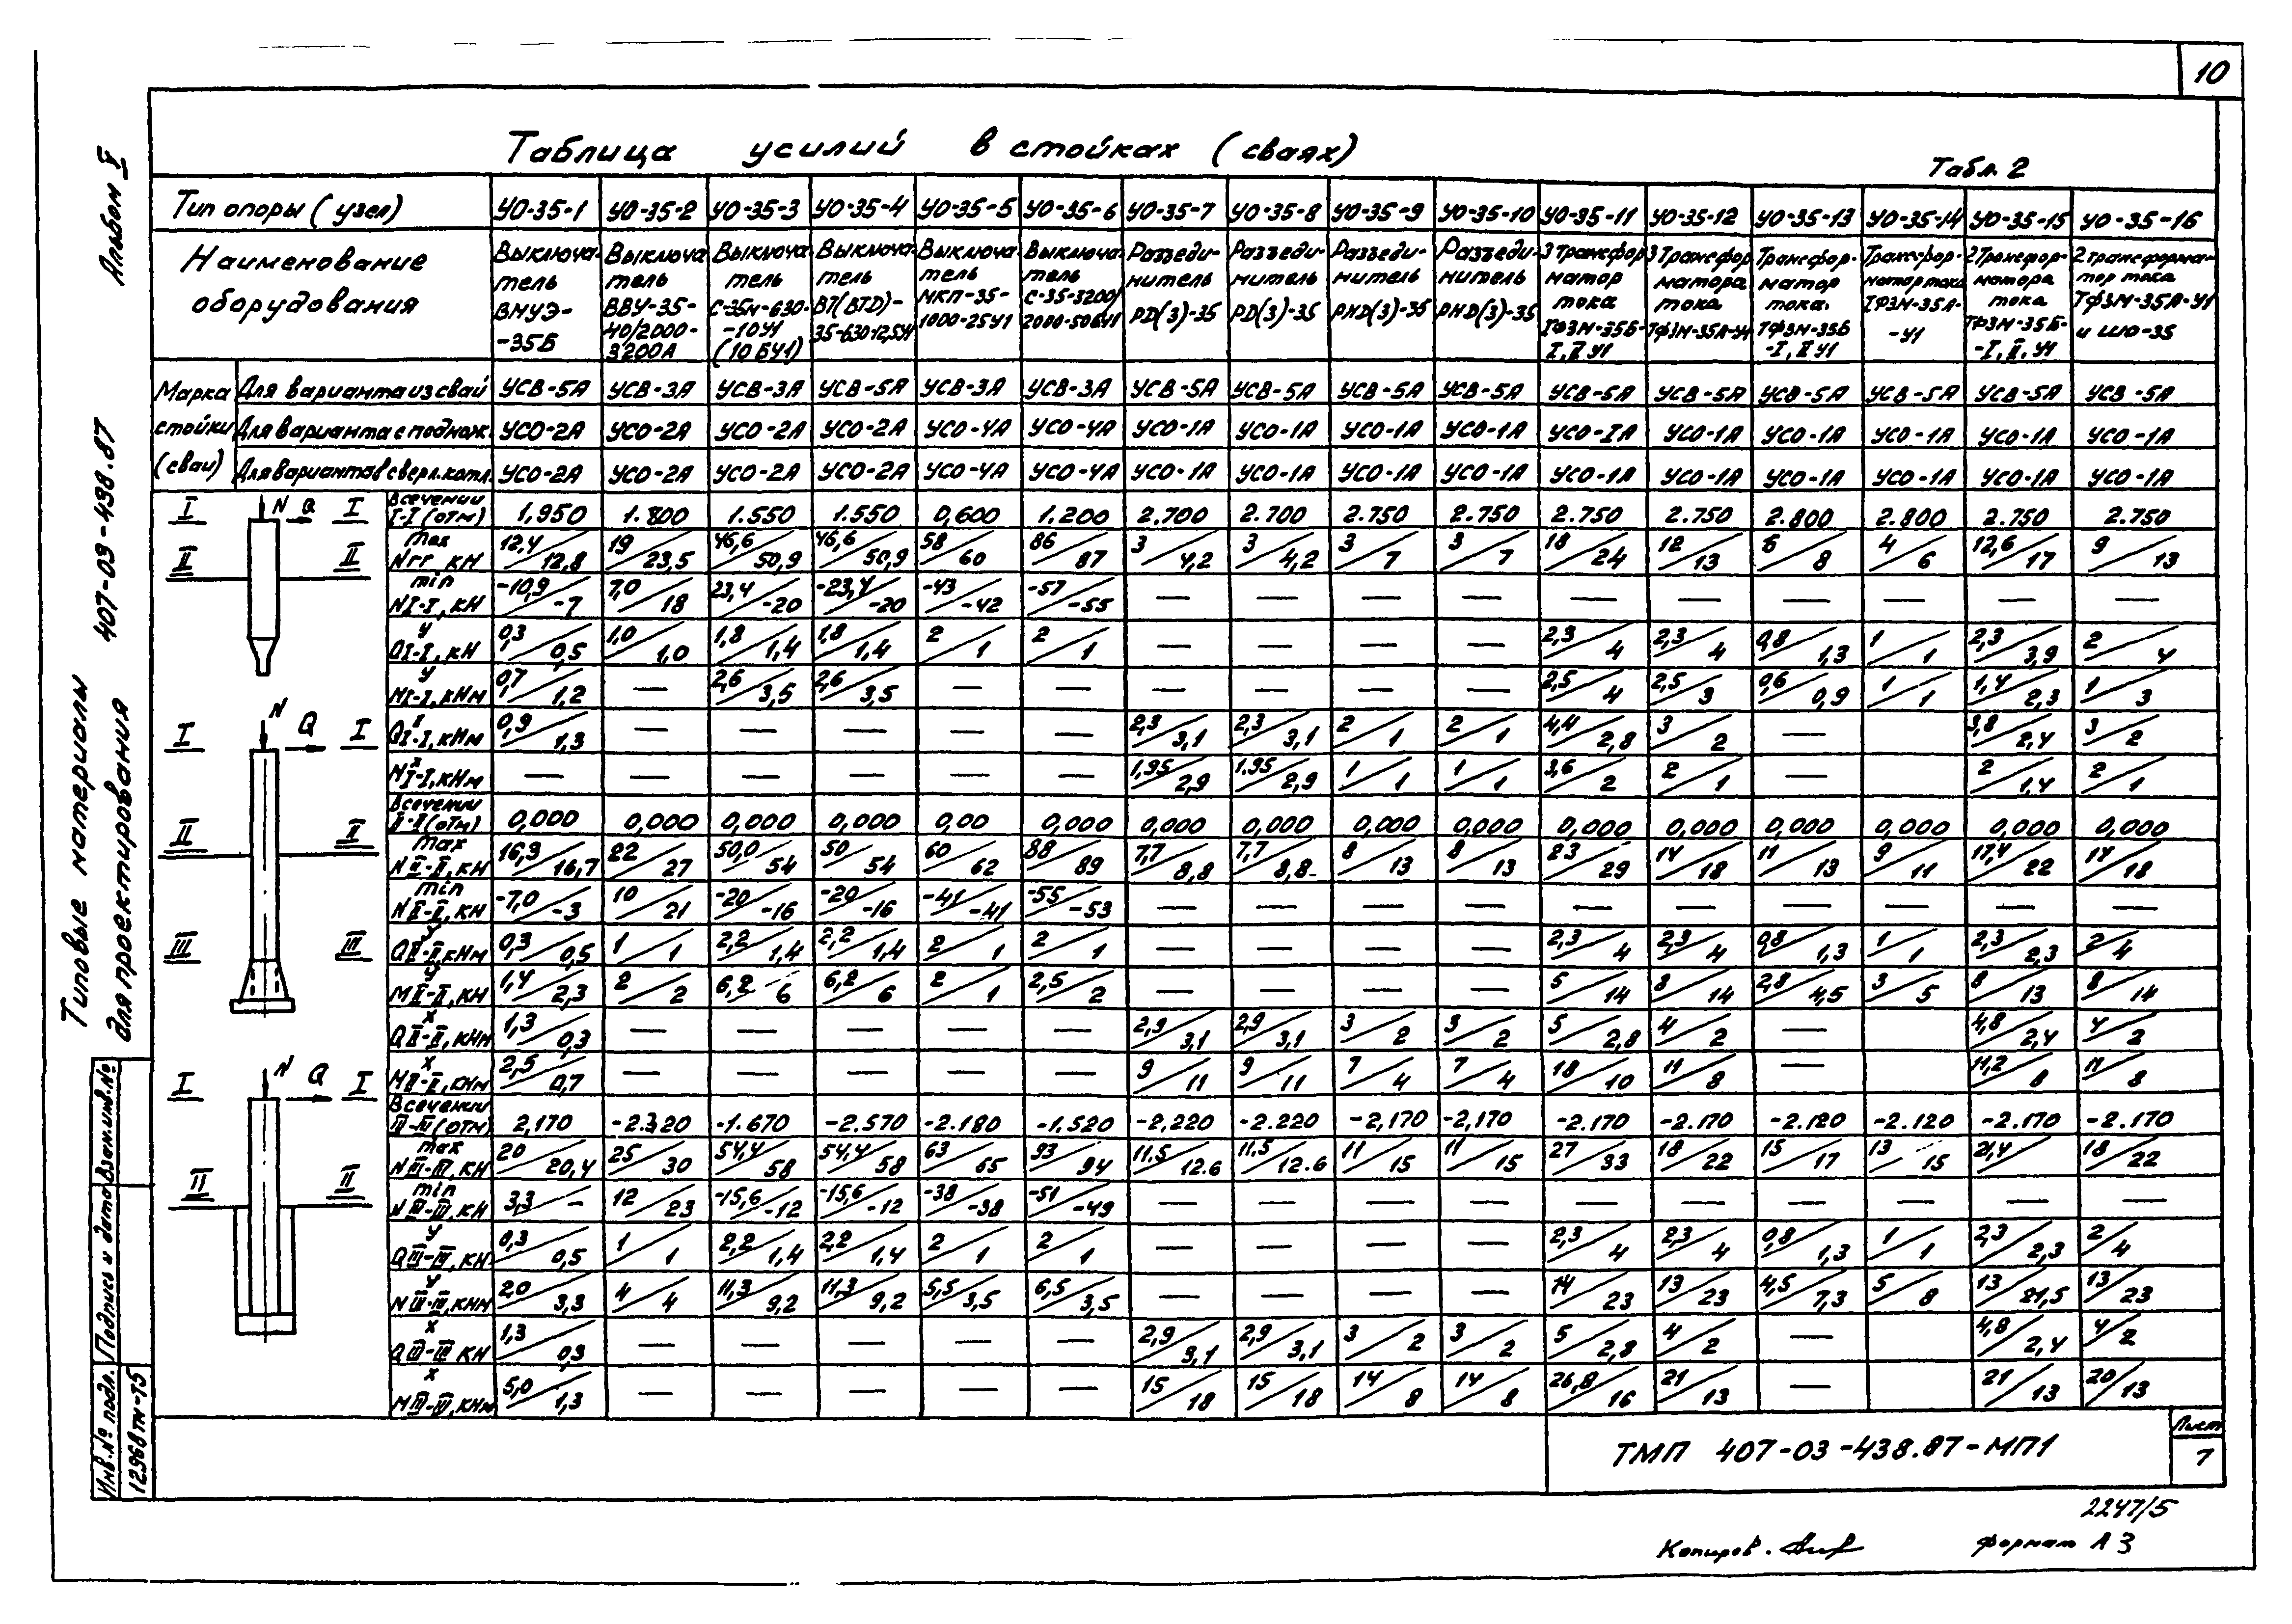 10
Таблица усилий в стойках (сваях)
Табл. 2
Тип опоры (узел) УО-35-1 УО-35-2 УО-35-3 УО-35-4 УО-35-5 УО-35-6 УО-35-7 УО-35-8 УО-35-9 УО-35-10 УО-35-11 УО-35-12 УО-35-13 УО-35-14 УО-35-15 УО-35-16
Наименование оборудования
Выключатель ВМУЭ-35Б
Выключатель ВВУ-35-40/2000-3200А
Выключатель С-35М-630-10У1 (10БУ1)
Выключатель ВТ(ВТД)-35-630-12,5У1
Выключатель МКП-35-1000-25У1
Выключатель С-35-3200/2000-50БУ1
Разъединитель РД(З)-35
Разъединитель РД(З)-35
Разъединитель РНД(З)-35
Разъединитель РНД(З)-35
3 Трансформатор тока ТФЗМ-35Б-I, II У1
3 Трансформатора тока ТФЗМ-35А-У1
Трансформатор тока ТФЗМ-35Б-I, II У1
Трансформатор тока ТФЗМ-35А-У1
2 Трансформатора тока ТФЗМ-35Б-I, II. У1
2 трансформатор тока ТФЗМ-35А-У1 и ШО-35
Марка стойки (сваи)
Для варианта из свай УСВ-5А УСВ-3А УСВ-3А УСВ-5А УСВ-3А УСВ-3А УСВ-5А УСВ-5А УСВ-5А УСВ-5А УСВ-5А УСВ-5А УСВ-5А УСВ-5А УСВ-5А УСВ-5А
Для варианта с поднож. УСО-2А УСО-2А УСО-2А УСО-2А УСО-4А УСО-4А УСО-1А УСО-1А УСО-1А УСО-1А УСО-IА УСО-1А УСО-1А УСО-1А УСО-1А УСО-1А
Для вариантов сверл. котл. УСО-2А УСО-2А УСО-2А УСО-2А УСО-4А УСО-4А УСО-1А УСО-1А УСО-1А УСО-1А УСО-1А УСО-1А УСО-1А УСО-1А УСО-1А УСО-1А
В сечении I-I (отм) 1.950 1.800 1.550 1.550 0,600 1.200 2.700 2.700 2.750 2.750 2.750 2.750 2.800 2.800 2.750 2.750
max NII, кН 12,4/12,8 19/23,5 46,6/50,9 46,6/50,9 58/60 86/87 3/4,2 3/4,2 3/7 3/7 18/24 12/13 6/8 4/6 12,6/17 9/13
min NI-I, кН -10,9/-7 7,0/18 23,4/-20 -23,4/-20 -43/-42 -57/-55 — — — — — — — — — —
У QI-I, кН 0,3/0,5 1,0/1,0 1,8/1,4 1,8/1,4 2/1 2/1 — — — — 2,3/4 2,3/4 0,8/1,3 1/1 2,3/3,9 2/4
У МI-I, кНм 0,7/1,2 — 2,6/3,5 2,6/3,5 — — — — — — 2,5/4 2,5/3 0,6/0,9 1/1 1,4/2,3 1/3
х QI-I, кНм 0,9/1,3 — — — — — 2,3/3,1 2,3/3,1 2/1 2/1 4,4/2,8 3/2 — 3,8/2,4 3/2
х NI-I, кНм — — — — — — 1,95/2,9 1,95/2,9 1/1 1/1 3,6/2 2/1 — 2/1,4 2/1
В сечении II-II (отм) 0,000 0,000 0,000 0,000 0,00 0,000 0,000 0,000 0,000 0,000 0,000 0,000 0,000 0,000 0,000 0,000
max NII-II, кН 16,3/16,7 22/27 50,0/54 50/54 60/62 88/89 7,7/8,8 7,7/8,8 8/13 8/13 23/29 14/18 11/13 9/11 17,4/22 14/18
min NII-II, кН -7,0/-3 10/21 -20/-16 -20/-16 -41/-41 -55/-53 — — — — — — — — — —
У QII-II, кНм 0,3/0,5 1/1 2,2/1,4 2,2/1,4 2/1 2/1 — — — — 2,3/4 2,3/4 0,8/1,3 1/1 2,3/2,3 2/4
У МII-II, кН 1,4/2,3 2/2 6,2/6 6,2/6 2/1 2,5/2 — — — — 5/14 8/14 2,8/4,5 3/5 8/13 8/14
х QII-II, кНм 1,3/0,3 — — — — — 2,9/3,1 2,9/3,1 3/2 3/2 5/2,8 4/2 — 4,8/2,4 4/2
х МII-II, кНм 2,5/0,7 — — — — — 9/11 9/11 7/4 7/4 18/10 11/8 — 11,2/8 11/8
В сечении III-III (отм) 2,170 -2.320 -1.670 -2.570 -2.180 -1.520 -2,220 -2.220 -2,170 -2,170 -2.170 -2.170 -2.120 -2.120 -2.170 -2.170
max NIII-III, кН 20/20,4 25/30 54,4/58 54,4/58 63/65 93/94 11.5/12.6 11.5/12.6 11/15 11/15 27/33 18/22 15/17 13/15 21,4/ 18/22
min NIII-III, кН 3,3/— 12/23 -15,6/-12 -15,6/-12 -38/-38 -51/-49 — — — — — — — — — —
У QIII-III, кН 0,3/0,5 1/1 2,2/1,4 2,2/1,4 2/1 2/1 — — — — 2,3/4 2,3/4 0,8/1,3 1/1 2,3/2,3 2/4
У NIII-III, кНм 2,0/3,3 4/4 11,3/9,2 11,3/9,2 5,5/3,5 6,5/3,5 — — — — 14/23 13/23 4,5/7,3 5/8 13/21,5 13/23
х QIII-III кН 1,3/0,3 — — — — — 2,9/3,1 2,9/3,1 3/2 3/2 5/2,8 4/2 — 4,8/2,4 4/2
х МIII-III, кНм 5,0/1,3 — — — — — 15/18 15/18 14/8 14/8 26,8/16 21/13 — 21/13 20/13
I N Q I
II II
N
I Q I
II II
III III
N Q
I I
II II
Альбом V
407-03-438.87
Типовые материалы
для проектирования
Взам. инв. №
Подпись и дата
Инв. № подл.
12968тм-т5
ТМП 407-03-438.87-МП1
Лист
7
2247/5
Копиров.
формат А3